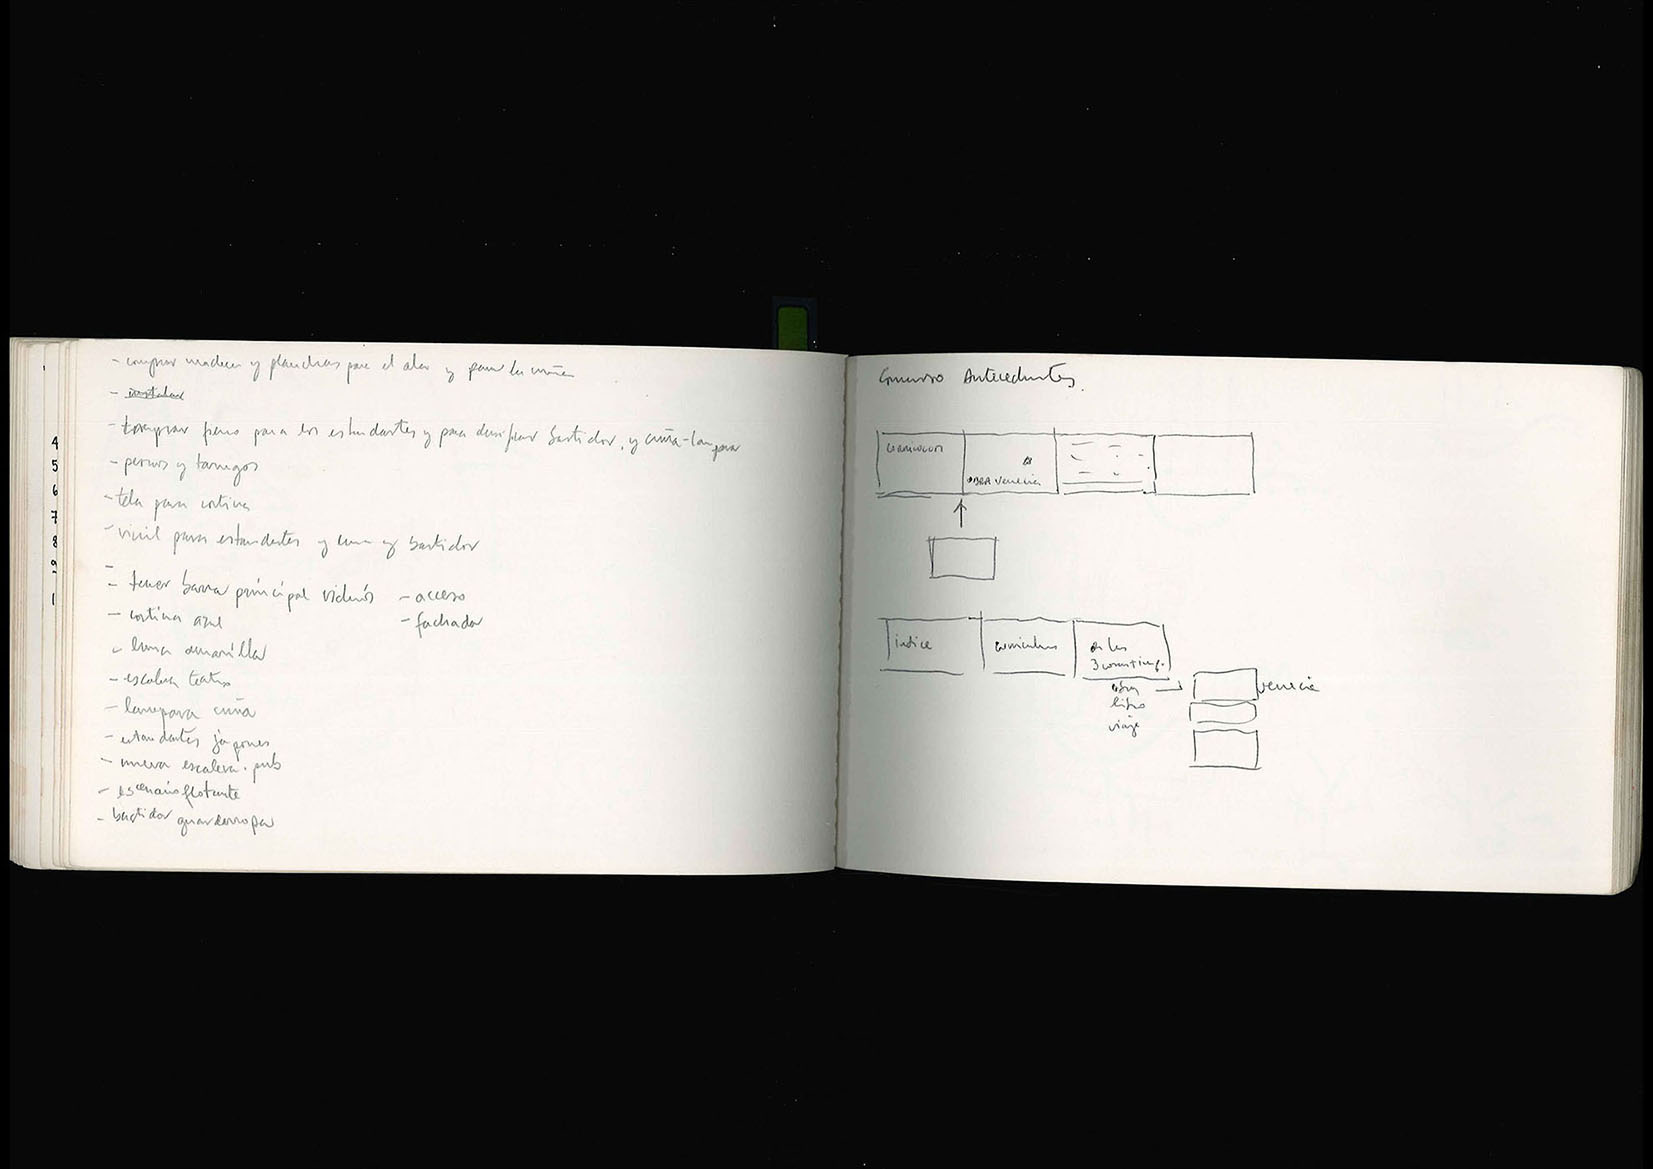 4
5
6
7
8
9
1
- comprar madera y planchas para el alar y para la
-
- comprar fierro para los estandartes y para bastidor, y cuña-lampara
- pernos y tarugos
- tela para cortina
- vinil para estandartes y luna y bastidor
-
- tener barra principal vidrios - acceso
- cortina azul - fachada
- luna amarilla
- escalera teatro
- lampara cuña
- estandartes japones
- nueva escalera. pub
- escenario flotante
- bastidor guardarropa
Concurso Antecedentes.
OBRA Venecia
índice
curriculum
de las
3
obra
libro
viaje
venecia